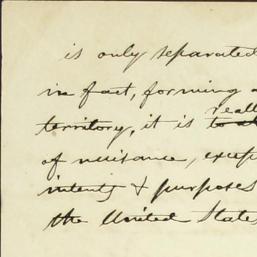 is only separated
in fact, forming a
really
territory, it is to
of nuisance, excep
intents & purposes
the United States